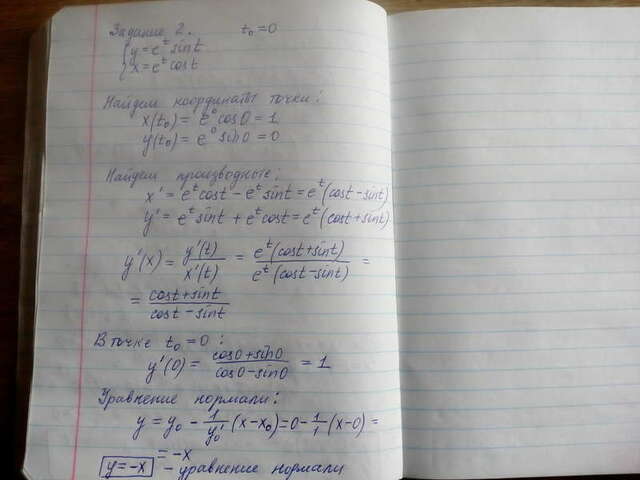 Задание 2. t₀=0
{y=eᵗ sint
{x=eᵗ cost
Найдем координаты точки:
x(t₀) = e⁰cos0 = 1
y(t₀) = e⁰ sin0 = 0
Найдем производные:
x' = eᵗcost - eᵗ sint = eᵗ(cost-sint)
y' = eᵗ sint + eᵗ cost = eᵗ(cost+sint)
y'(x) = y'(t)/x'(t) = eᵗ(cost+sint)/eᵗ(cost-sint) =
= cost+sint/cost-sint
В точке t₀=0:
y'(0) = cos0+sin0/cos0-sin0 = 1
Уравнение нормали:
y = y₀ - 1/y₀' (x-x₀) = 0 - 1/1 (x-0) =
= -x
y=-x - уравнение нормали